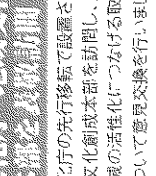 化庁の先行移転で設置さ
文化創成本部を訪問し、
域の活性化につなげる取
ついて意見交換を行いまし